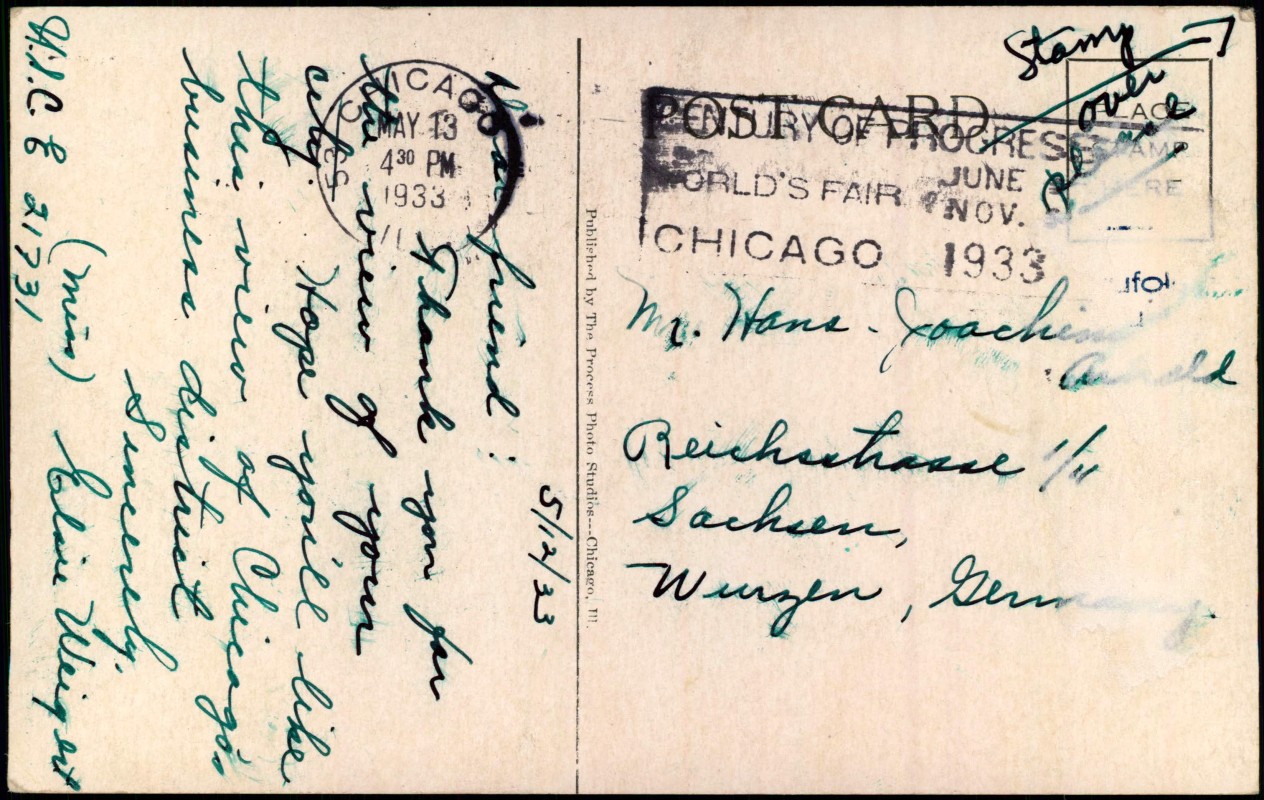 5/12/33
Dear friend:
Thank you for
the view of your
city. Hope you'll like
this view of Chicago's
business district
Sincerely,
(miss) Elsie Weigert
H.S.C E 21731
Published by The Process Photo Studios---Chicago, Ill.
CHICAGO
MAY 13
4 30 PM
1933
ILL.
POST CARD
CENTURY OF PROGRESS
WORLD'S FAIR
JUNE
NOV.
CHICAGO 1933
Stamp
over
please
PLACE
STAMP
HERE
Mr. Hans-Joachim
Arnold
Reichsstrasse 1/11
Sachsen,
Wurzen, Germany.